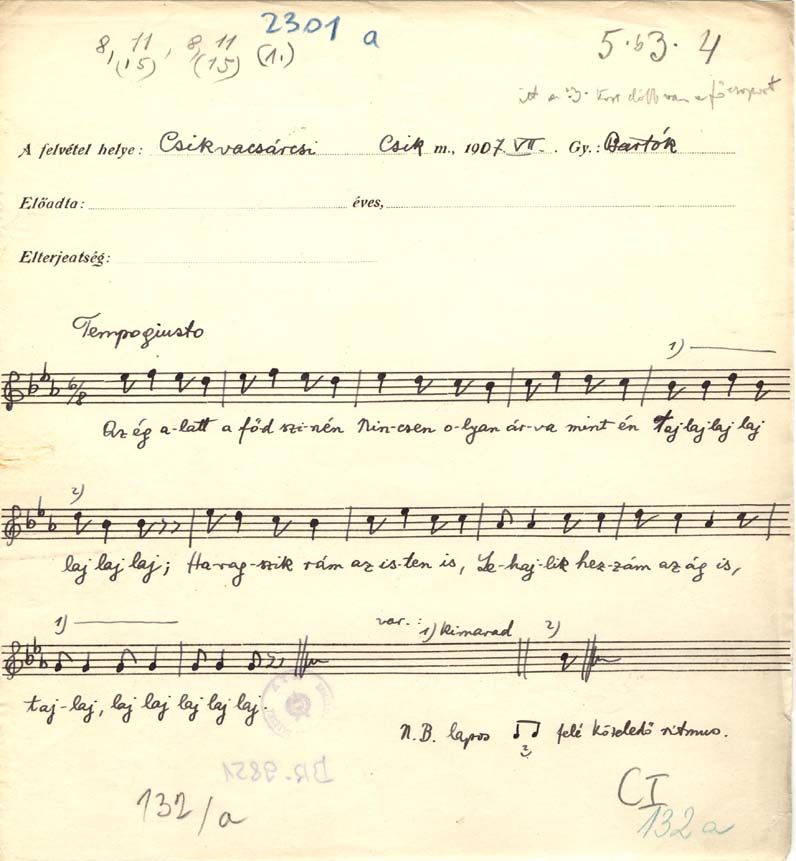 2301 a
8, 11, 8, 11 (1.)
(15) (15)
5 · b3 · 4
A felvétel helye: Csikvacsárcsi Csik m., 1907. VII. Gy.: Bartók
Előadta: éves,
Elterjedtség:
Tempogiusto
1)
6/8
Az ég a-latt a főd szi-nén Nin-csen o-lyan ár-va mint én Taj laj laj laj
2)
laj laj laj; Ha-rag-szik rám az is-ten is, Le-haj-lik hez-zám az ág is,
1) var.: 1) kimarad 2)
taj-laj, laj laj laj laj laj.
N.B. lapos felé közeledő ritmus.
2
BR. 9821
132/a
CI
132a